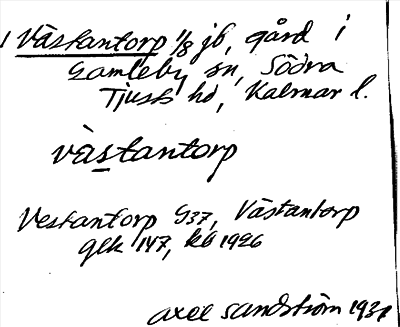 Västantorp 1/8 jb, gård i
Gamleby sn, Södra
Tjusts hd, Kalmar l.
västantorp
Vestantorp G37, Västantorp
gek 147, kb 1926
Axel Sandström 1931